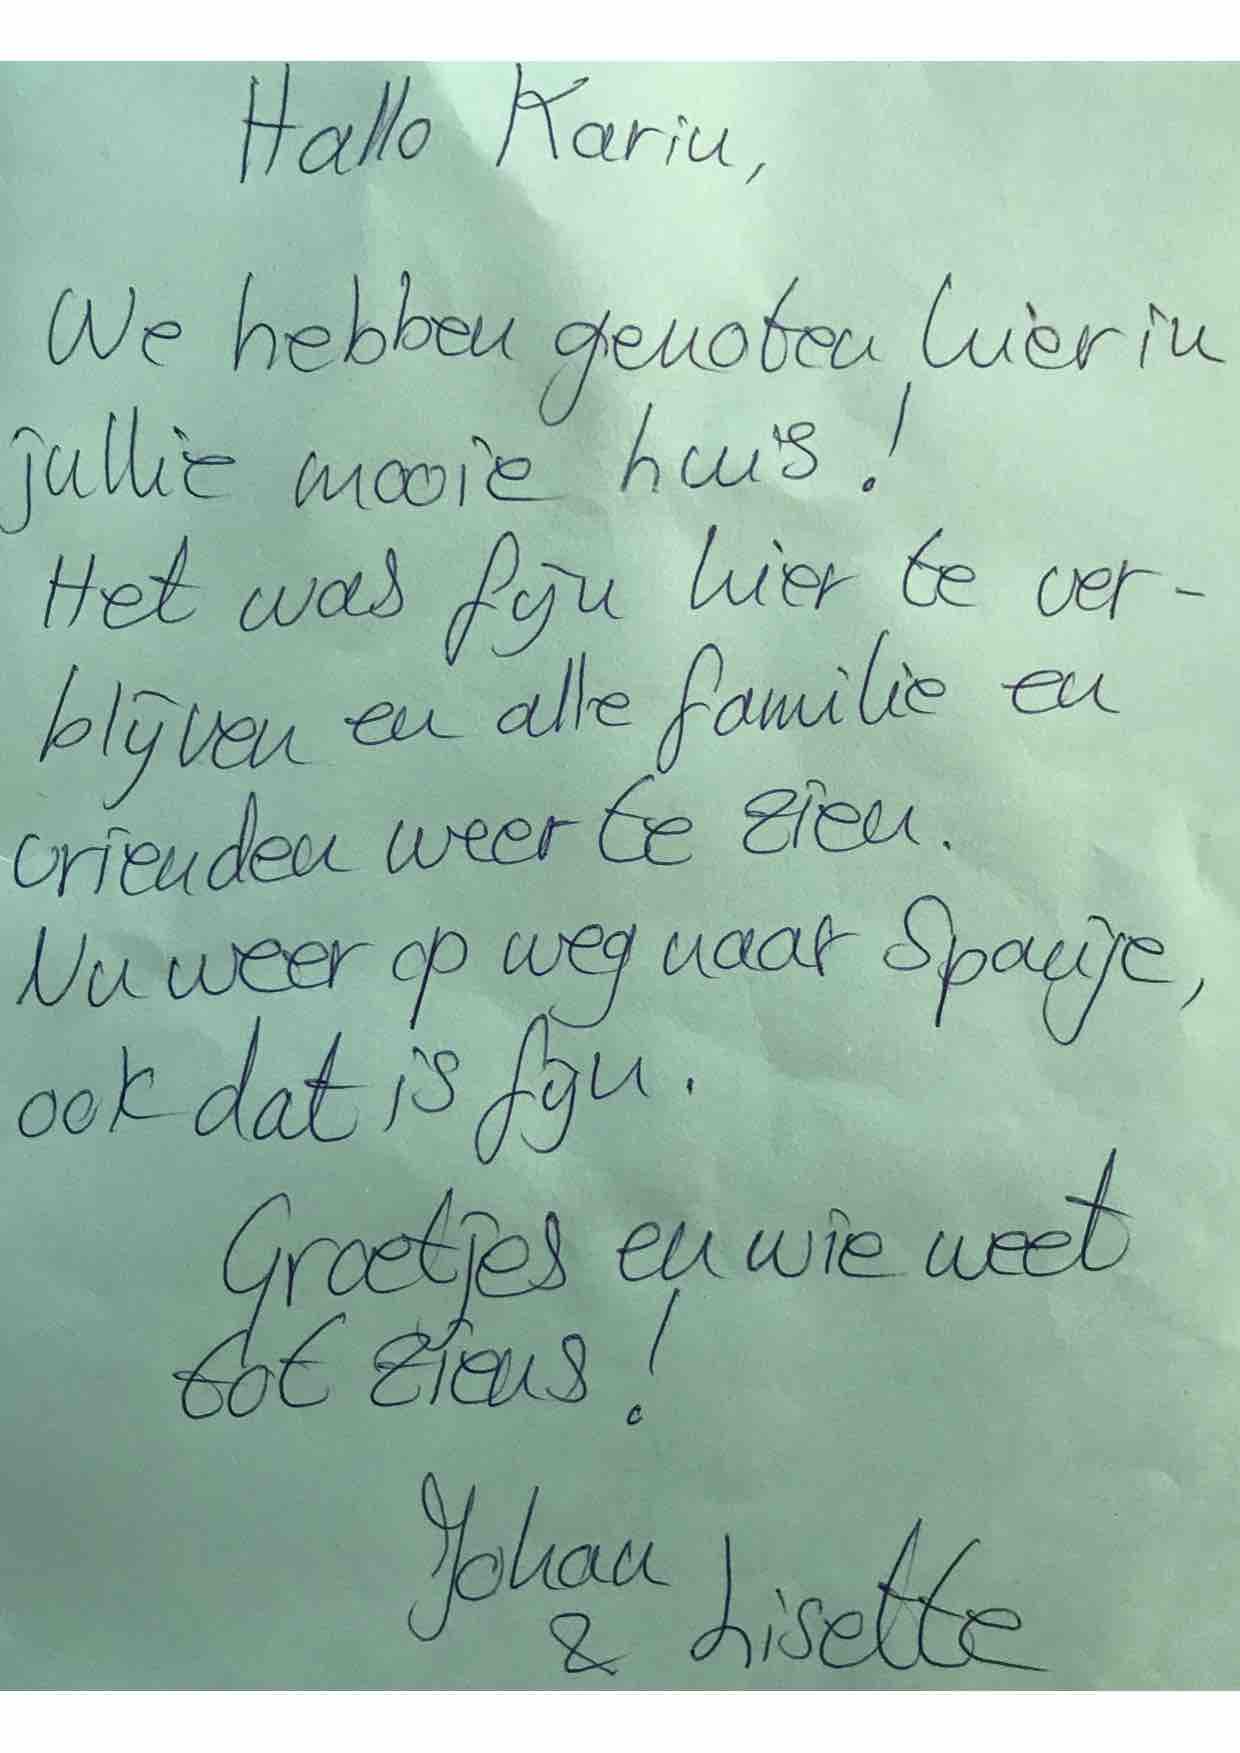 Hallo Karin,
We hebben genoten hier in
jullie mooie huis!
Het was fijn hier te ver-
blijven en alle familie en
vrienden weer te zien.
Nu weer op weg naar Spanje,
ook dat is fijn.
Groetjes en wie weet
tot ziens!
Johan
& Lisette